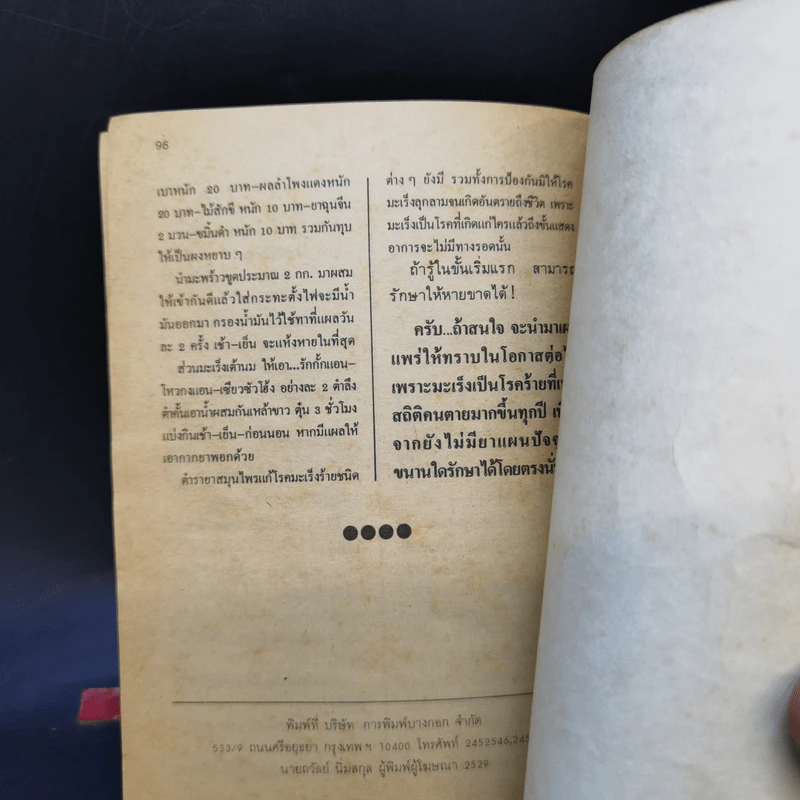 96
เบาหนัก 20 บาท-ผลลำโพงแดงหนัก
20 บาท-ไม้สักขี หนัก 10 บาท-ยาฉุนจีน
2 มวน-ขมิ้นดำ หนัก 10 บาท รวมกันทุบ
ให้เป็นผงหยาบ ๆ
นำมะพร้าวขูดประมาณ 2 กก. มาผสม
ให้เข้ากันดีแล้วใส่กระทะตั้งไฟจะมีน้ำ
มันออกมา กรองน้ำมันไว้ใช้ทาที่แผลวัน
ละ 2 ครั้ง เช้า-เย็น จะแห้งหายในที่สุด
ส่วนมะเร็งเต้านม ให้เอา...รักกั้กแอน-
โหวกงแอน-เซียวซัวโฮ้ง อย่างละ 2 ตำลึง
ตำคั้นเอาน้ำผสมกันเหล้าขาว ตุ๋น 3 ชั่วโมง
แบ่งกินเช้า-เย็น-ก่อนนอน หากมีแผลให้
เอากากยาพอกด้วย
ตำรายาสมุนไพรแก้โรคมะเร็งร้ายชนิด
ต่าง ๆ ยังมี รวมทั้งการป้องกันมิให้โรค
มะเร็งลุกลามจนเกิดอันตรายถึงชีวิต เพราะ
มะเร็งเป็นโรคที่เกิดแก่ใครแล้วถึงขั้นแสดง
อาการจะไม่มีทางรอดนั้น
ถ้ารู้ในขั้นเริ่มแรก สามารถ
รักษาให้หายขาดได้ !
ครับ...ถ้าสนใจ จะนำมาเผ
แพร่ให้ทราบในโอกาสต่อไ
เพราะมะเร็งเป็นโรคร้ายที่
สถิติคนตายมากขึ้นทุกปี
จากยังไม่มียาแผนปัจจ
ขนานใดรักษาได้โดยตรงนั่
พิมพ์ที่ บริษัท การพิมพ์บางกอก จำกัด
533/9 ถนนศรีอยุธยา กรุงเทพ ฯ 10400 โทรศัพท์ 2452546,245
นายถวัลย์ นิ่มสกุล ผู้พิมพ์ผู้โฆษณา 2529